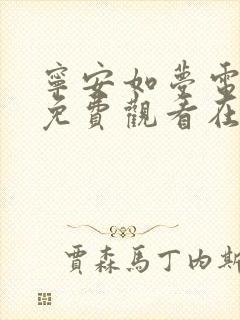 寧安如夢電
免費觀看在
賈森馬丁內斯